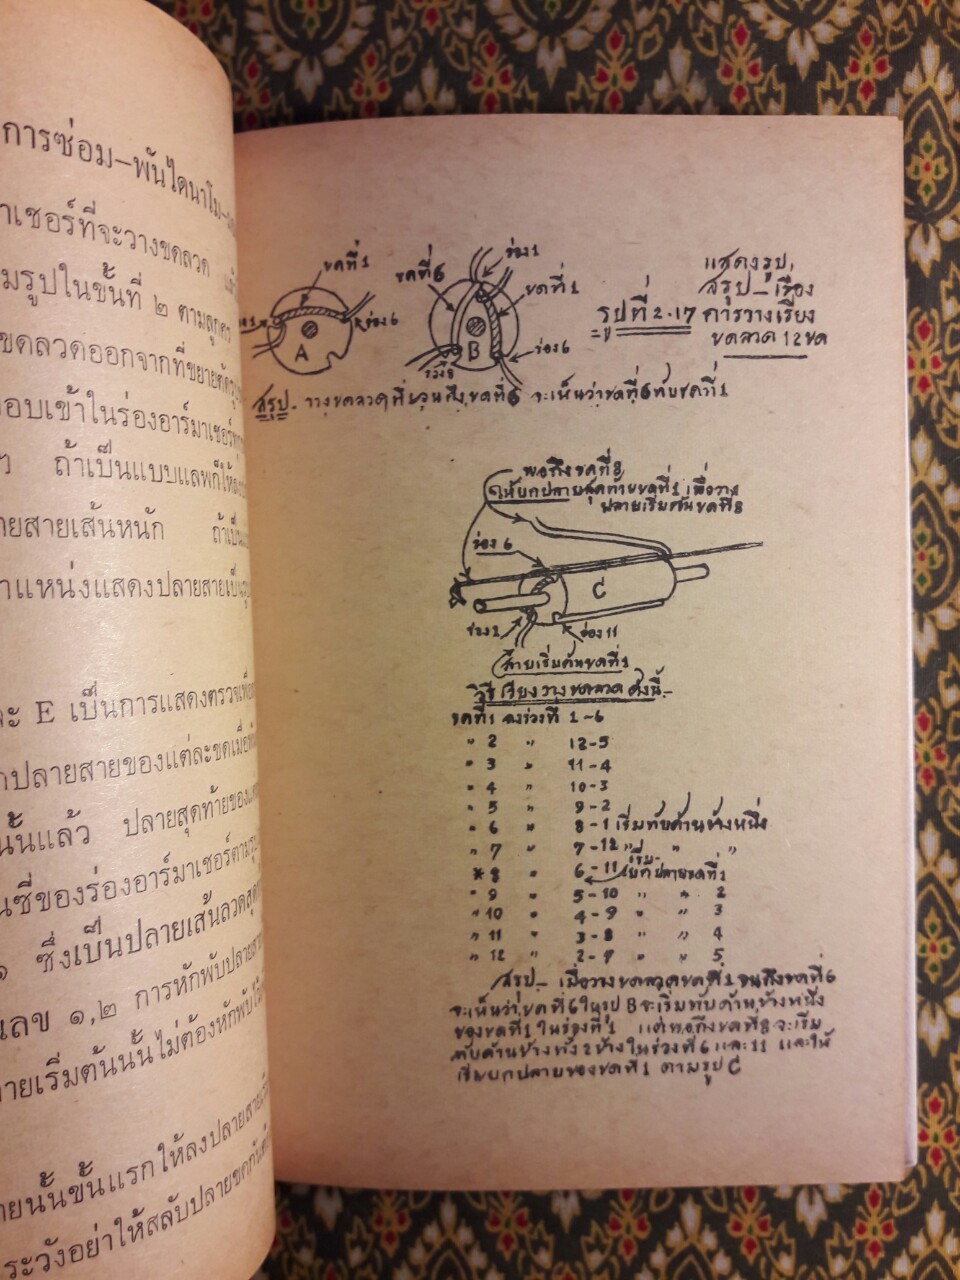 การซ่อม-พันไดนาโม-
าเชอร์ที่จะวางขดลวด
มรูปในขั้นที่ ๒ ตามลูกศร
ขดลวดออกจากที่ขยาย
อบเข้าในร่องอาร์มาเชอร์
ๆ ถ้าเป็นแบบแลพก็ให้
ายสายเส้นหนัก ถ้าเป็น
าแหน่งแสดงปลายสายเป็น
ละ E เป็นการแสดงตรวจ
ปลายสายของแต่ละขดเมื่อ
นั้นแล้ว ปลายสุดท้ายของ
นซี่ของร่องอาร์มาเชอร์ตามรูป
๑ ซึ่งเป็นปลายเส้นลวดสุด
เลข ๑,๒ การหักพับปลายสาย
ายเริ่มต้นนั้นไม่ต้องหักพับ
ายนั้นขั้นแรกให้ลงปลายสาย
ระวังอย่าให้สลับปลายขดกัน
ขดที่ 1
ร่อง 6
A
ขดที่ 6
ร่อง 1
ขดที่ 1
B
ร่อง 6
ร่อง 8
แสดงรูป
สรุป - เรื่อง
รูปที่ 2.17 การวางเรียง
ขดลวด 12 ขด
สรุป - วางขดลวดที่ 1 จนถึงขดที่ 6 จะเห็นว่าขดที่ 6 ทับขดที่ 1
พอถึงขดที่ 8
ให้ยกปลายสุดท้ายขดที่ 1 เพื่อวาง
ปลายเริ่มต้นขดที่ 8
ร่อง 6
C
ร่อง 1
ร่อง 11
สายเริ่มต้นขดที่ 1
วิธีเรียงวางขดลวด ดังนี้ -
ขดที่ 1 ลงร่องที่ 1-6
" 2 " 12-5
" 3 " 11-4
" 4 " 10-3
" 5 " 9-2
" 6 " 8-1 เริ่มทับด้านข้างหนึ่ง
" 7 " 7-12 " " "
* 8 " 6-11 เริ่มยกปลายขดที่ 1
" 9 " 5-10 " " 2
" 10 " 4-9 " " 3
" 11 " 3-8 " " 4
" 12 " 2-7 " " 5
สรุป - เมื่อวางขดลวดขดที่ 1 จนถึงขดที่ 6
จะเห็นว่าขดที่ 6 ในรูป B จะเริ่มทับด้านข้างหนึ่ง
ของขดที่ 1 ในร่องที่ 1 แต่พอถึงขดที่ 8 จะเริ่ม
ทับด้านข้างทั้ง 2 ข้างในร่องที่ 6 และ 11 และให้
เริ่มยกปลายของขดที่ 1 ตามรูป C